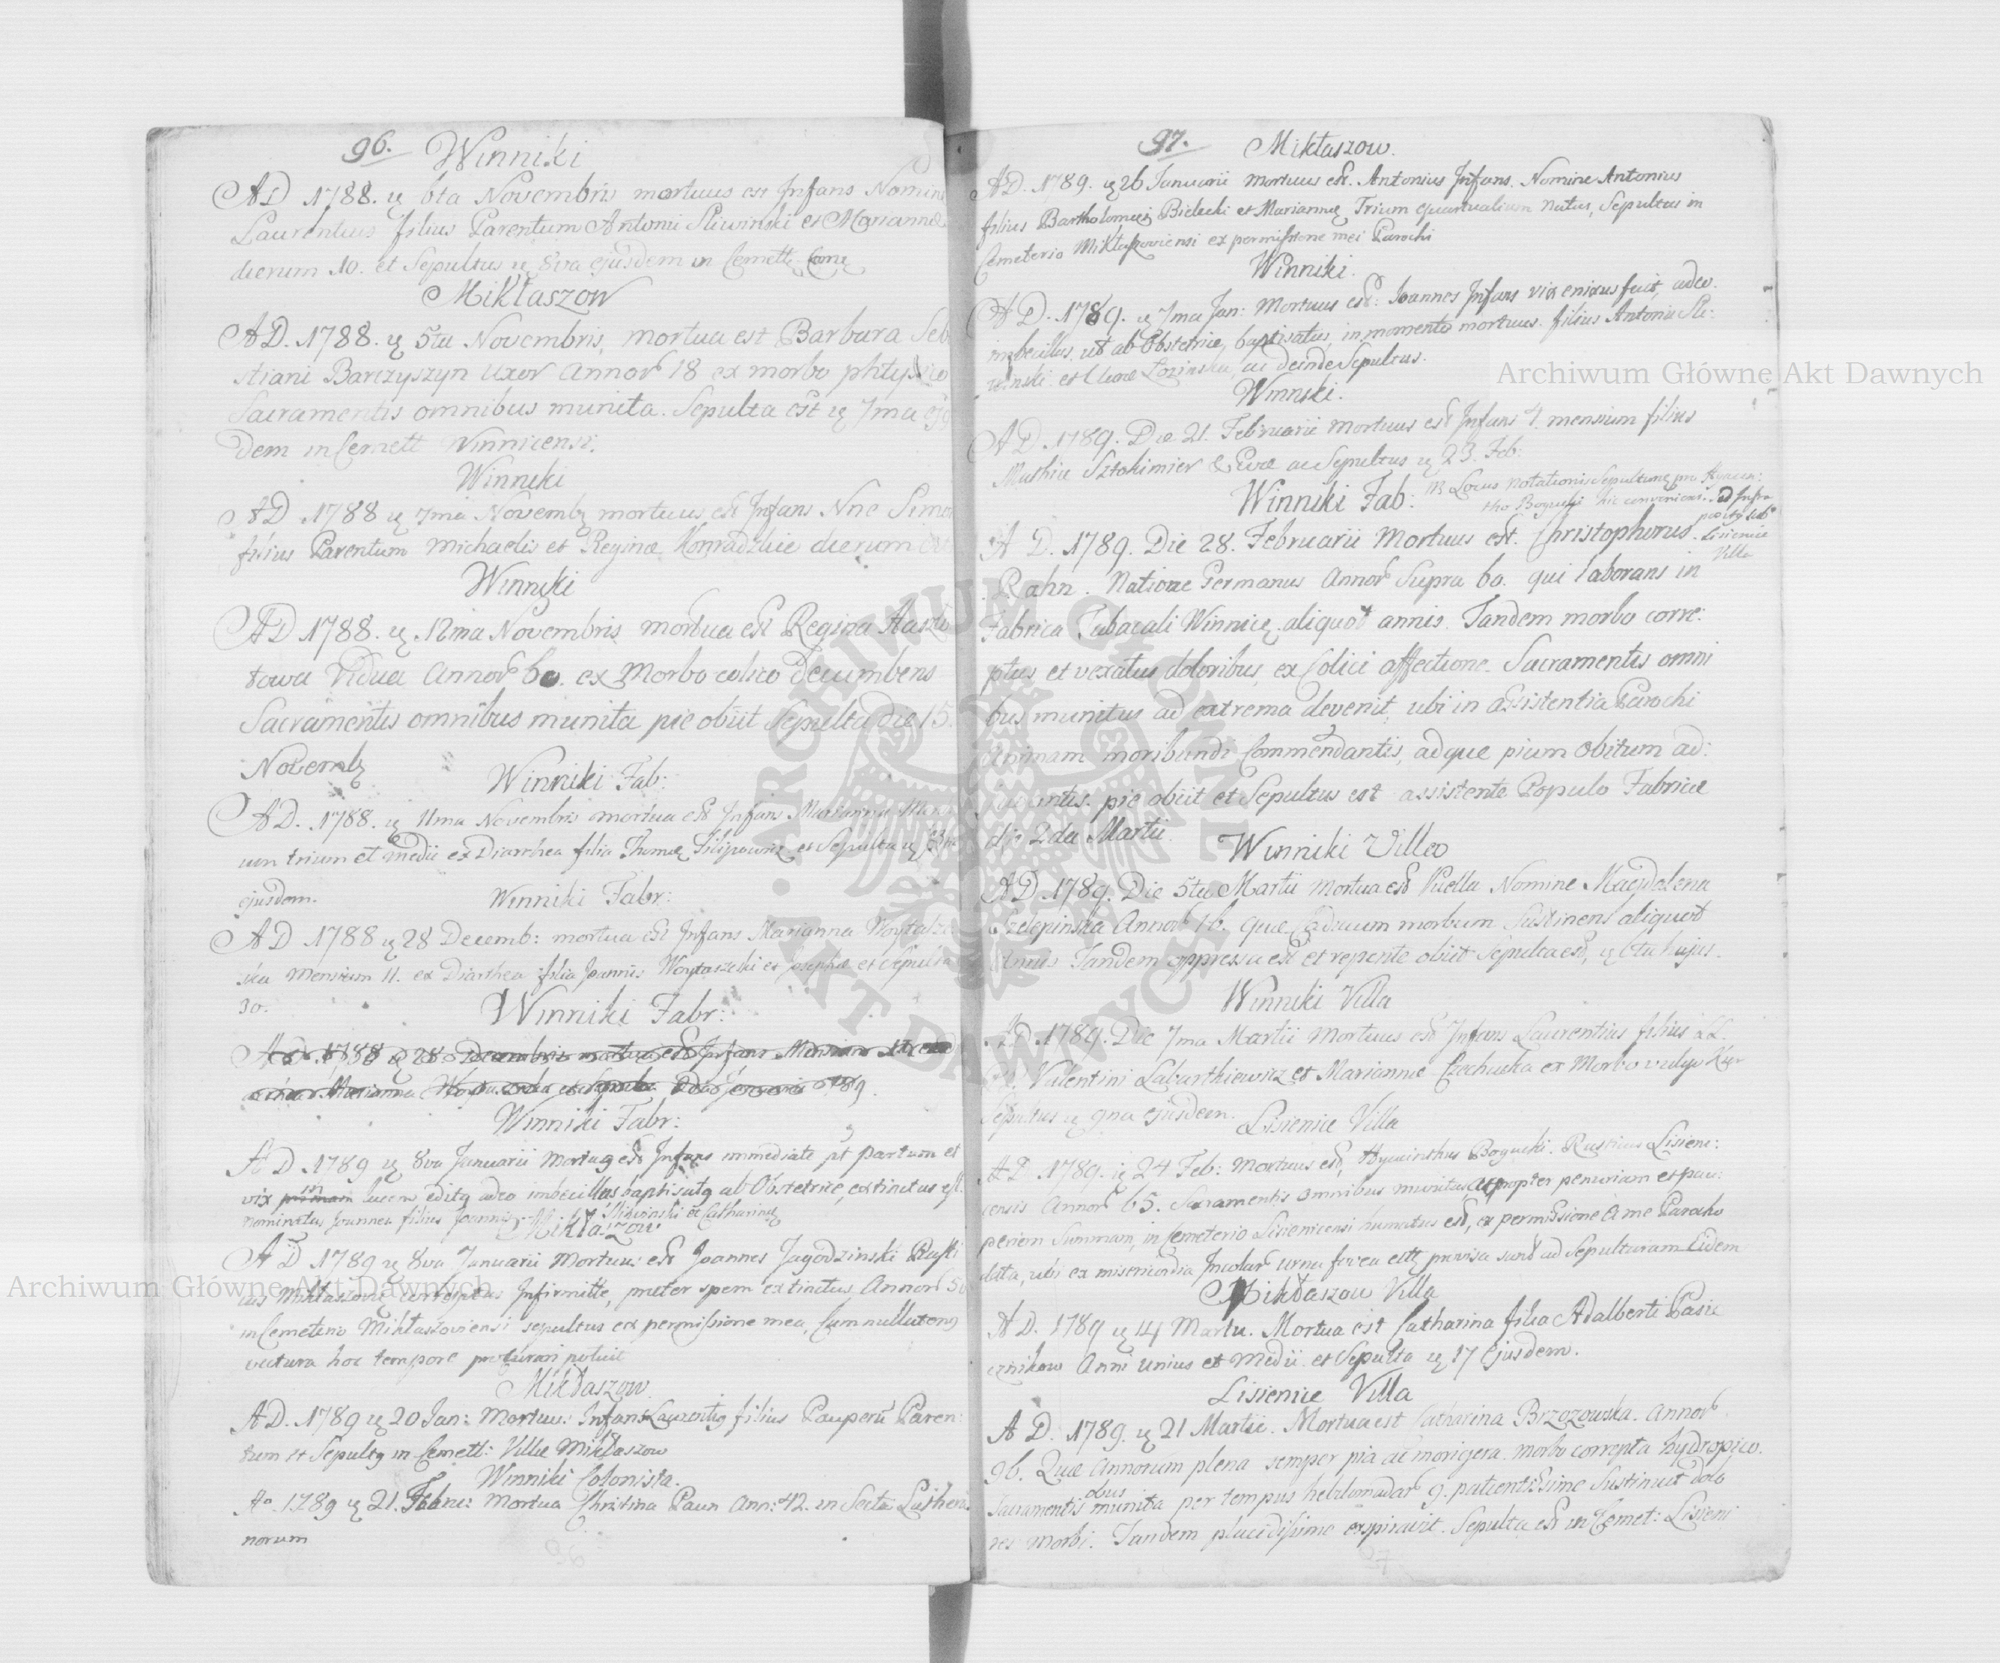 96. Winniki
AD 1788. ę 6ta Novembris mortuus est Infans Nomine
Laurentius filius Parentum Antonii Sliwinski et Mariannæ
dierum 10. et Sepultus ę 8va ejusdem in Cemett.
Mikłaszow
AD. 1788. ę 5ta Novembris, mortua est Barbara Seb
stiani Barczyszyn uxor Annor 18 ex morbo phtysico
Sacramentis omnibus munita. Sepulta est ę 7ma ejus
dem in Cemett Winnicensi.
Winniki
AD 1788 ę 7ma Novemb mortuus est Infans Nne Simon
filius Parentum Michaelis et Reginæ dierum
Winniki
AD 1788. ę 12ma Novembris mortua est Regina
towa Vidua Annor 60. ex Morbo colico decumbens
Sacramentis omnibus munita pie obiit Sepulta die 15.
Novemb
Winniki Fab:
AD. 1788. ę 11ma Novembris mortua est Infans Marianna Mens
ium trium et medii ex Diarrhea filia Thomæ et Sepulta ę 13
ejusdem.
Winniki Fabr:
AD 1788 ę 28 Decemb: mortua est Infans Marianna
ska Mensium 11. ex Diarrhea filia Joannis et Josephæ et Sepulta
30.
Winniki Fabr:
AD. 1788 ę 28 Decembris mortua est Infans Mensium
Marianna 1789.
Winniki Fabr:
AD. 1789 ę 8va Januarii Mortus est Infans immediate pt partum et
vix primam in lucem editq adeo imbecillus baptisatq ab Obstetrice, extinctus est.
nominatus Joannes filius Joannis Sliwinski et Catharinæ
Mikłaszow
AD 1789 ę 8va Januarii Mortuus est Joannes Jagodzinski Rusti
cus Mikłaszoviæ correptus Infirmitte, præter spem extinctus Annor 50
in Cemeterio Mikłaszoviensi sepultus ex permissione mea, Cum nullatenq
vectura hoc tempore procurari potuit
Mikłaszow.
AD. 1789 ę 20 Jan: Mortuus Infans Laurentiq filius Pauperu Paren-
tum et Sepultq in Cemett: Villæ Mikłaszow
Winniki Colonista.
Ao. 1789 ę 21. Febru: Mortua Christina Paun Ann: 42. in Secta Luthera
norum
97. Mikłaszow.
AD. 1789. ę 26 Januarii mortuus est. Antonius Infans. Nomine Antonius
filius Bartholomæi Bielecki et Mariannę Trium quartualium natus, Sepultus in
Cemeterio Mikłaszoviensi ex permissione mei Parochi
Winniki.
AD. 1789. ę 7ma Jan: Mortuus est: Joannes Infans vix enixus fuit, adeo.
imbecillus, ut ab Obstetrice, baptisatus, in momento mortuus. filius Antonii Sli:
winski et ac deinde Sepultus.
Winniki.
AD. 1789. Die 21. Februarii mortuus est Infans 4 mensium filius
Mathiæ Sztokimier & Evæ ac Sepultus ę 23. Feb:
Winniki Fab: NB Locus notationis Sepulturę pro Hyacin:
tho Bogucki hic conveniens. ad Infra
positq sub
Lisienice
Villa
AD. 1789. Die 28. Februarii Mortuus est. Christophorus
Rahn. Natione Germanus Annor Supra 60. qui laborans in
Fabrica Tabacali Winnicę aliquot annis. Tandem morbo corre:
ptus et vexatus doloribus, ex Colici affectione. Sacramentis omni
bus munitus ad extrema devenit, ubi in assistentia Parochi
animam moribundi Commendantis, adque pium obitum ad:
pie obiit et Sepultus est assistente Populo Fabricæ
die 2da Martii.
Winniki Villa
AD. 1789. Die 5ta Martii mortua est Puella Nomine Magdalena
Szelepinska Annor 16. quæ Caducum morbum Sustinens aliquot
Annis Tandem oppressa est et repente obiit Sepulta est, ę 6ta hujus.
Winniki Villa
AD. 1789. Die 7ma Martii Mortuus est Infans Laurentius filius LL.
Valentini et Mariannæ Czechuska ex Morbo vulgo Kur
Sepultus ę 9na ejusdem.
Lisienice Villa
AD 1789. ę 24 Feb: Mortuus est, Hyacinthus Bogucki. Rusticus Lisieni:
censis Annor 65. Sacramentis omnibus munitus, propter penuriam et pau:
periem Summam, in Cemeterio Lisienicensi humatus est, ex permissione a me Parocho
data, ubi ex misericordia Incolar urna fovea estq provisa sunt ad Sepulturam Eidem
Mikłaszow Villa
AD. 1789 ę 14 Martii. Mortua est Catharina filia Adalberti Pasie
cznikow Anni unius et Medii et Sepulta ę 17 Ejusdem.
Lisienice Villa
AD. 1789. ę 21 Martii. Mortua est Catharina Brzozowska. Annor
96. Quæ Annorum plena semper pia ac morigera. morbo correpta hydropico.
Sacramentis obus munita per tempus hebdomadar 9. patientissime Sustinuit dolo
res morbi. Tandem placidissime expiravit. Sepulta est in Cemet: Lisieni
Archiwum Główne Akt Dawnych
Archiwum Główne Akt Dawnych
ARCHIWUM GŁÓWNE AKT DAWNYCH